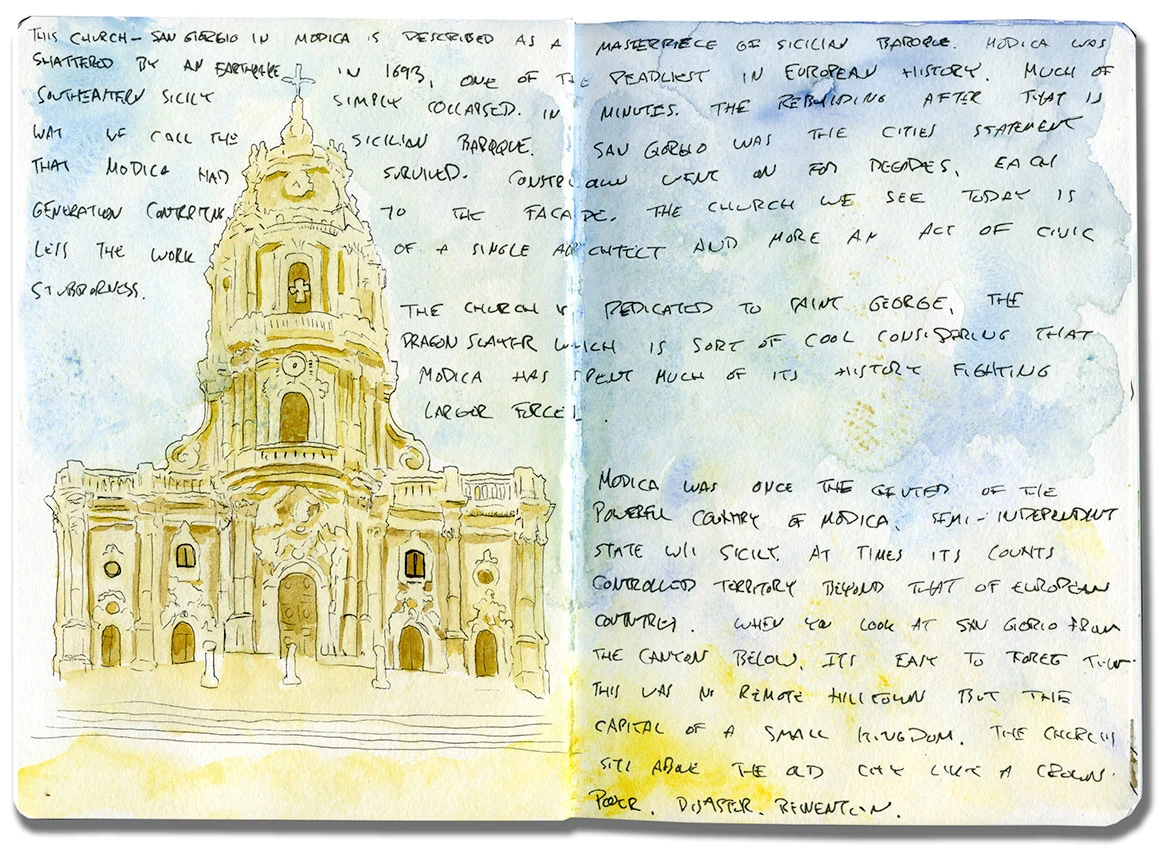 THIS CHURCH - SAN GIORGIO IN MODICA IS DESCRIBED AS A MASTERPIECE OF SICILIAN BAROQUE. MODICA WAS
SHATTERED BY AN EARTHQUAKE IN 1693, ONE OF THE DEADLIEST IN EUROPEAN HISTORY. MUCH OF
SOUTHEASTERN SICILY SIMPLY COLLAPSED. IN MINUTES. THE REBUILDING AFTER THAT IS
WAT WE CALL THE SICILIAN BAROQUE. SAN GIORGIO WAS THE CITIES STATEMENT
THAT MODICA HAD SURVIVED. CONSTRUCTION WENT ON FOR DECADES, EACH
GENERATION CONTRIBUTING TO THE FACADE. THE CHURCH WE SEE TODAY IS
LESS THE WORK OF A SINGLE ARCHITECT AND MORE AN ACT OF CIVIC
STUBBORNESS.
THE CHURCH IS DEDICATED TO SAINT GEORGE, THE
DRAGON SLAYER WHICH IS SORT OF COOL CONSIDERING THAT
MODICA HAS SPENT MUCH OF ITS HISTORY FIGHTING
LARGER FORCES.
MODICA WAS ONCE THE CENTER OF THE
POWERFUL COUNTRY OF MODICA. SEMI-INDEPENDENT
STATE W/I SICILY. AT TIMES ITS COUNTS
CONTROLLED TERRITORY BEYOND THAT OF EUROPEAN
COUNTRIES. WHEN YOU LOOK AT SAN GIORIO FROM
THE CANYON BELOW, ITS EASY TO FORGET THAT
THIS WAS NO REMOTE HILLTOWN BUT THE
CAPITAL OF A SMALL KINGDOM. THE CHURCH
SITS ABOVE THE OLD CITY LIKE A CROWN.
POWER. DISASTER. REINVENTION.